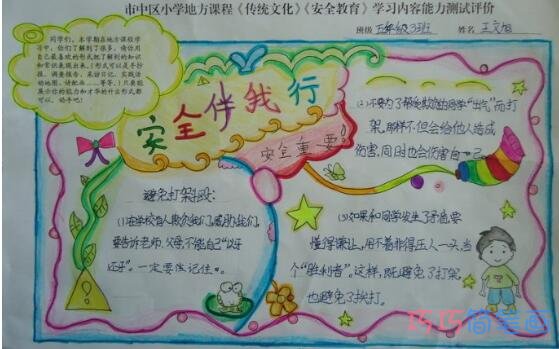 市中区小学地方课程《传统文化》《安全教育》学习内容能力测试评价
班级 五年级3班 姓名 王文旭
同学们，本学期在地方课程学
习中，你们了解到了很多，请你用
自己最喜欢的形式把了解到的知识
和常识表现出来。（形式可以是手抄
报、调查报告、采访日记、实践活
动地图、诗配画……等等，）只要能
展示你的能力和才华的什么形式都
可以，动手吧！
安全伴我行
安全重要！
避免打架斗殴：
(1)在学校有人欺负我们，威胁我们，
要告诉老师、父母，不能自己“以牙
还牙”。一定要忍记住。
(2)不要为了帮要好的同学“出气”而打
架，那样不但会给他人造成
伤害，同时也会伤害自己。
(3)如果和同学发生了矛盾，要
懂得谦让，用不着非得压人一头，当
个“胜利者”。这样，既避免了打架，
也避免了挨打。
巧巧简笔画